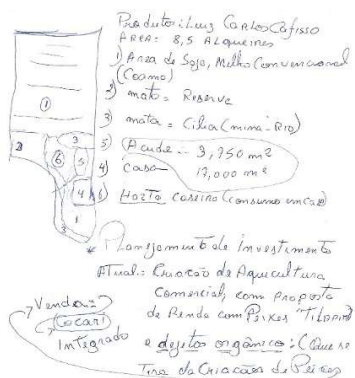 Produtor: Luiz Carlos Cafisso
AREA: 8,5 ALqueires
1) Area de Soja, Milho Convencional
(Cosmo)
2) mato = Reserve
3) mata = Cilia (mina-Rio)
5) Acude - 3,750 m²
4) Casa 17,000 m²
6) Horta Caseira (consumo
* Planejamento de Investimento
Atual: Criação de Aquecultura
Comercial, com proposta
de Renda com Peixes "Tilapia"
Venda =
(Cocari)
Integrado
e dejetos orgânico: (Que se
Tira da Criacão de Peixes
1
2
3
6
5
4
6
1
3